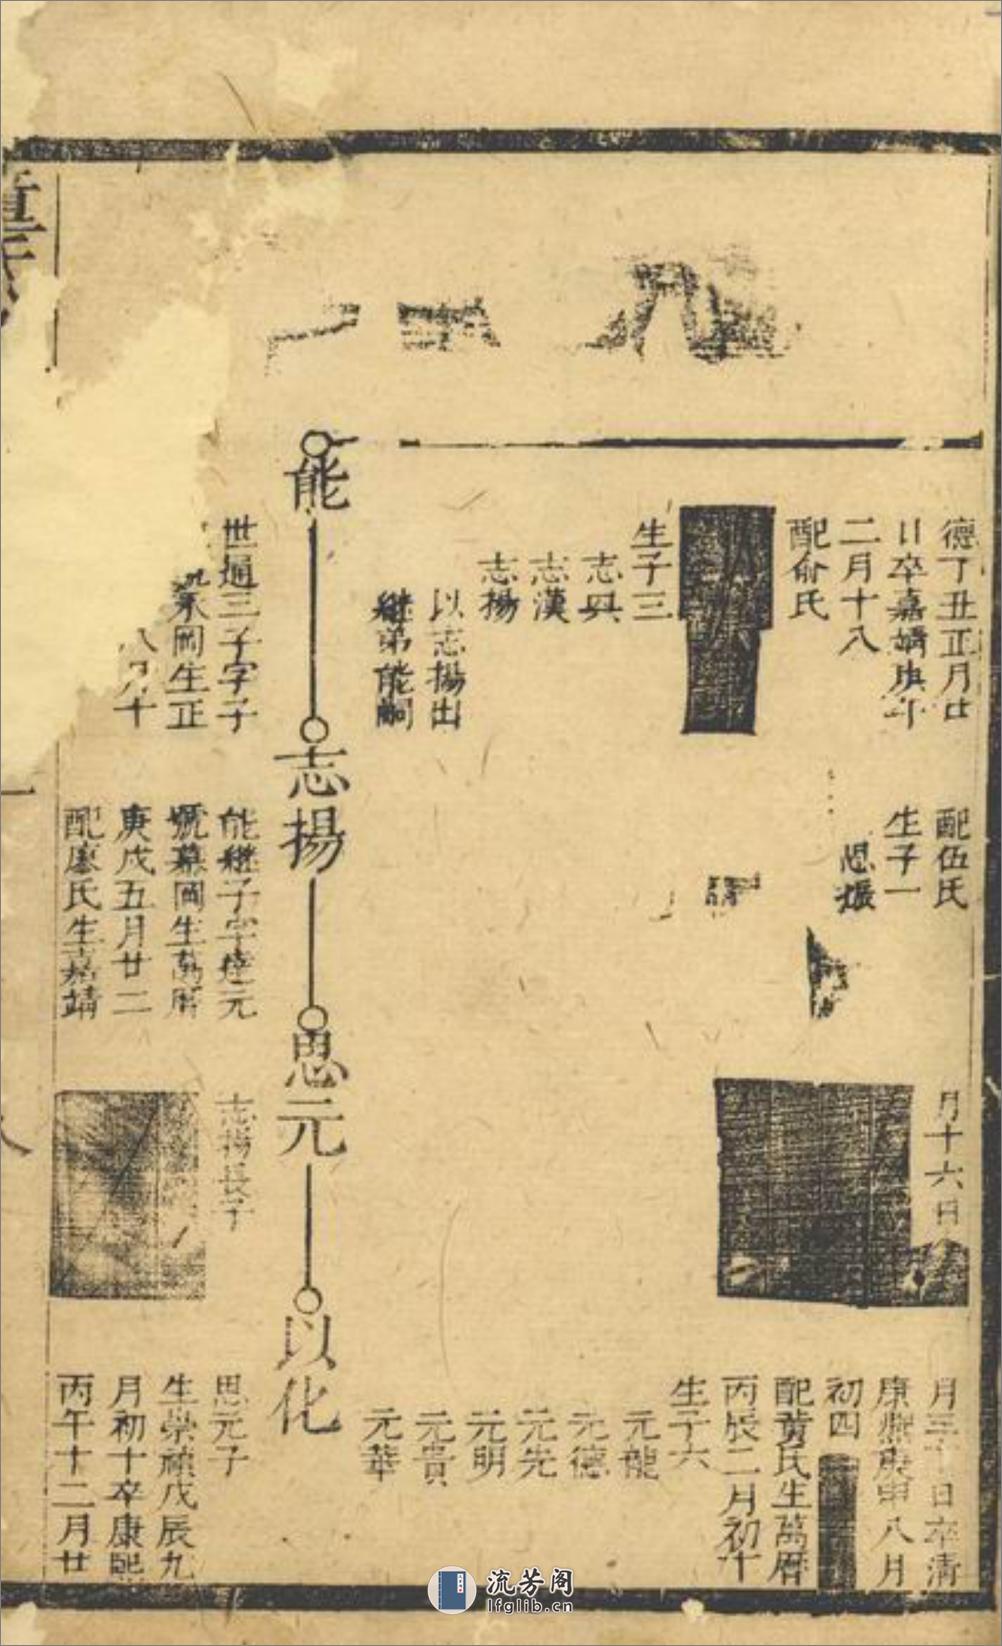 德丁丑正月廿
日卒嘉靖庚年
二月十八
配俞氏
生子三
志興
志漢
志揚
以志揚出
繼弟能嗣
能
世通三子字子
岡生正
八月十
配伍氏
生子一
思振
志揚
能繼子字達元
號慕岡生萬曆
庚戌五月廿二
配廖氏生嘉靖
月十六日
思元
志揚長子
月三十日卒清
康熙庚申八月
初四
配黃氏生萬曆
丙辰二月初十
生子六
元龍
元德
元先
元明
元貴
元華
以化
思元子
生崇禎戊辰九
月初十卒康熙
丙午十二月廿
流芳阁
lfglib.cn